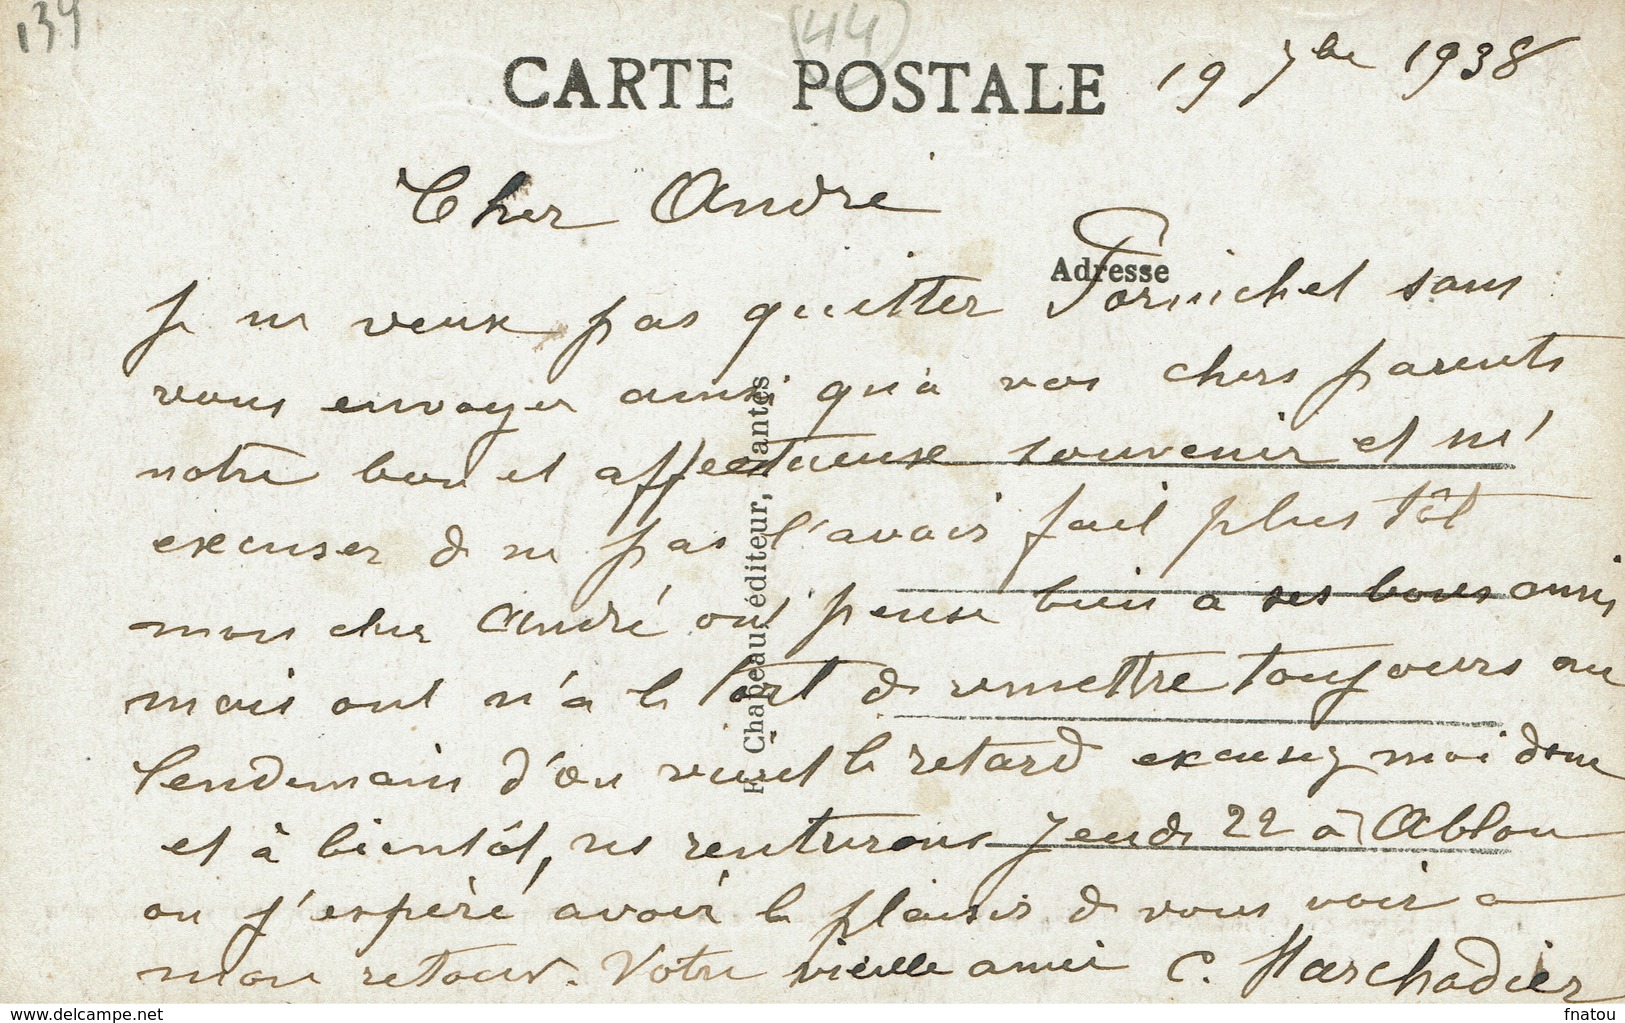 139
(44)
CARTE POSTALE 19 7bre 1938
Cher André
Adresse
Je ne veux pas quitter Pornichet sans
vous envoyer ainsi qu'à vos chers parents
notre bon et affectueuse souvenir et m'
excuser de ne pas l'avoir fait plus tôt
mon cher André ont pense bien a ses bons amis
mais ont n'a le tort de remettre toujours au
lendemain d'ou vient le retard excusez moi donc
et à bientôt, ns rentrerons Jeudi 22 à Ablon
ou j'espère avoir le plaisir de vous voir a
mon retour. Votre vieille amie C. Marchadier
F. Chapeau, éditeur, Nantes
www.delcampe.net
fnatou